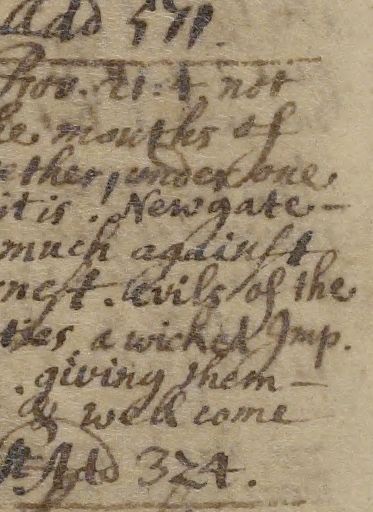 Add 571.
Prov. 21. 4. not
he mouths of
ether, under one
it is. Newgate –
much against
nest. evils of the
ties, a wicked Imp.
. giving them –
& weal come
Add 324.